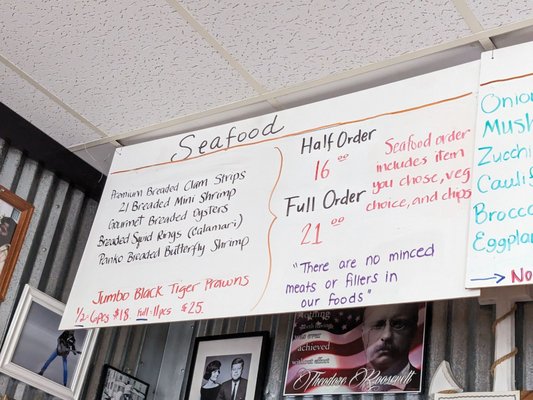 Seafood
Premium Breaded Clam Strips
21 Breaded Mini Shrimp
Gourmet Breaded Oysters
Breaded Squid Rings (calamari)
Panko Breaded Butterfly Shrimp
Jumbo Black Tiger Prawns
1/2-6pcs $18. Full-11pcs $25.
Half Order
16 00
Full Order
21 00
Seafood order
includes item
you chose, veg
choice, and chips
"There are no minced
meats or fillers in
our foods"
Onion
Mush
Zucchi
Caulif
Brocco
Eggplan
→ No
Nothing
without effort
Theodore Roosevelt